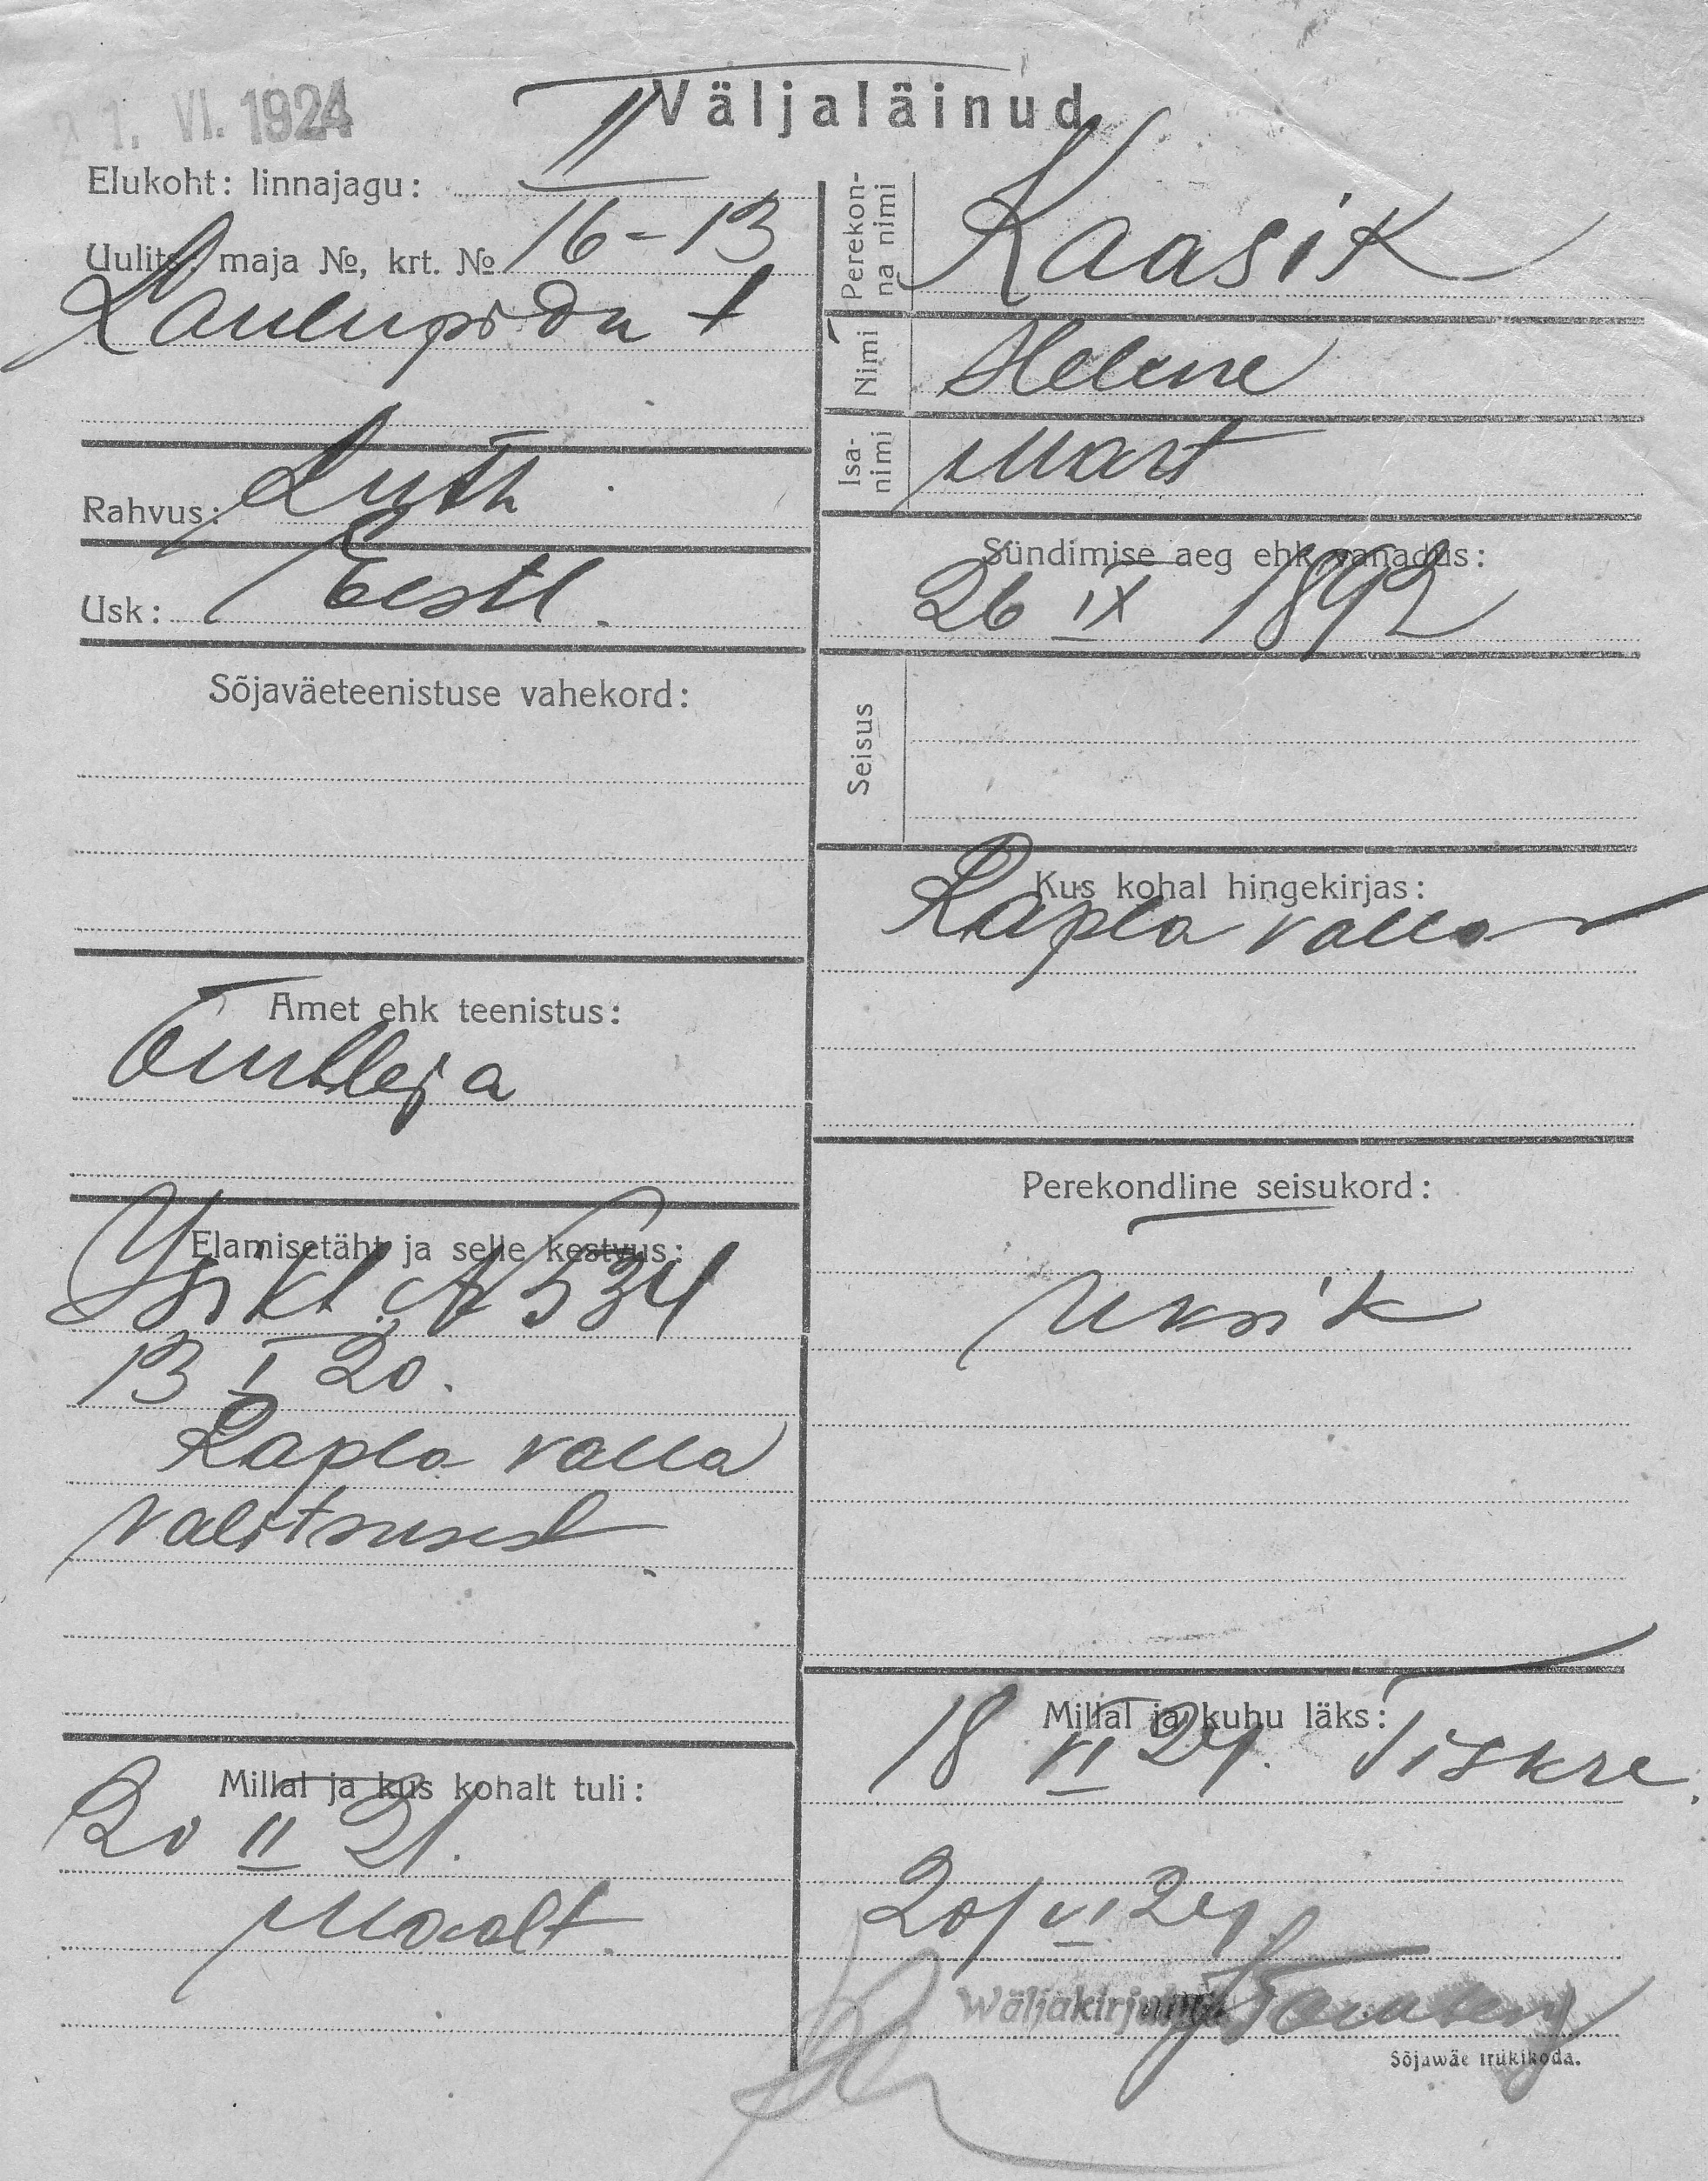 21. VI. 1924
Väljaläinud
Elukoht: linnajagu: II
Uulits, maja №, krt. № 16-13
Laulupidu t
Rahvus: Luth
Usk: Eestl.
Sõjaväeteenistuse vahekord:
Amet ehk teenistus:
Õmbleja
Elamisetäht ja selle kestvus:
Isikt. № 534
13 I 20.
Rapla valla
valitsusest
Millal ja kus kohalt tuli:
20 II 21.
Maalt.
Perekonna nimi Kaasik
Nimi Helene
Isanimi Mart
Sündimise aeg ehk vanadus:
26 IX 1892
Seisus
Kus kohal hingekirjas:
Rapla valla
Perekondline seisukord:
Üksik
Millal ja kuhu läks:
18 VI 24. Tiskre.
20/VI 24.
Wäljakirjutaja
Sõjawäe trükikoda.